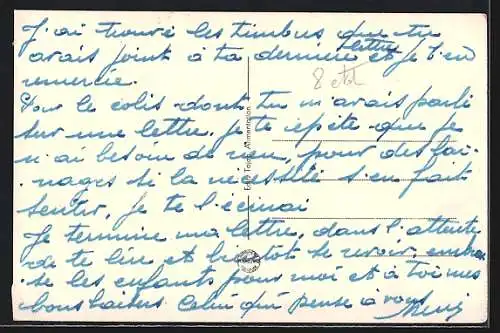 J'ai trouvé les timbres que tu
avais joint à ta dernière lettre et je t'en
remercie.
8
Pour le colis dont tu m'avais parlé
sur une lettre, je te répète que je
n'ai besoin de rien, pour des lai-
nages si la nécessité s'en fait
sentir, je te l'écrirai
Je termine ma lettre, dans l'attente
de te lire et bientôt se revoir, embras-
-se les enfants pour moi et à toi mes
bons baisers Celui qui pense à vous
Edit. Alimentation